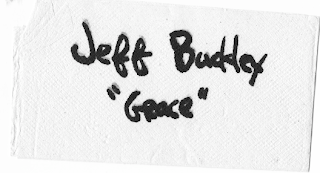 Jeff Buckley
"Grace"